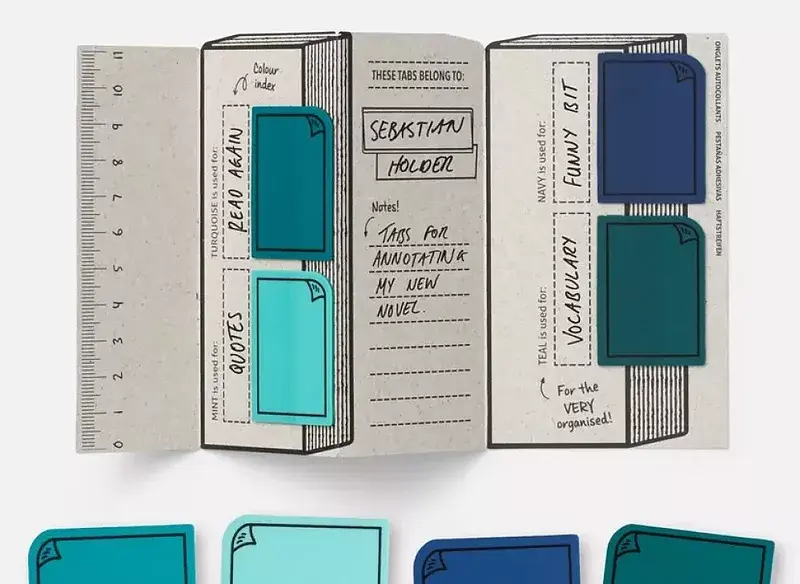 11
10
9
8
7
6
5
4
3
2
1
0
Colour
index
TURQUOISE is used for:
READ AGAIN
MINT is used for:
QUOTES
THESE TABS BELONG TO:
SEBASTIAN
HOLDER
Notes!
TABS FOR
ANNOTATING
MY NEW
NOVEL.
NAVY is used for:
FUNNY BIT
TEAL is used for:
VOCABULARY
For the
VERY
organised!
ONGLETS AUTOCOLLANTS PESTAÑAS ADHESIVAS HAFTSTREIFEN